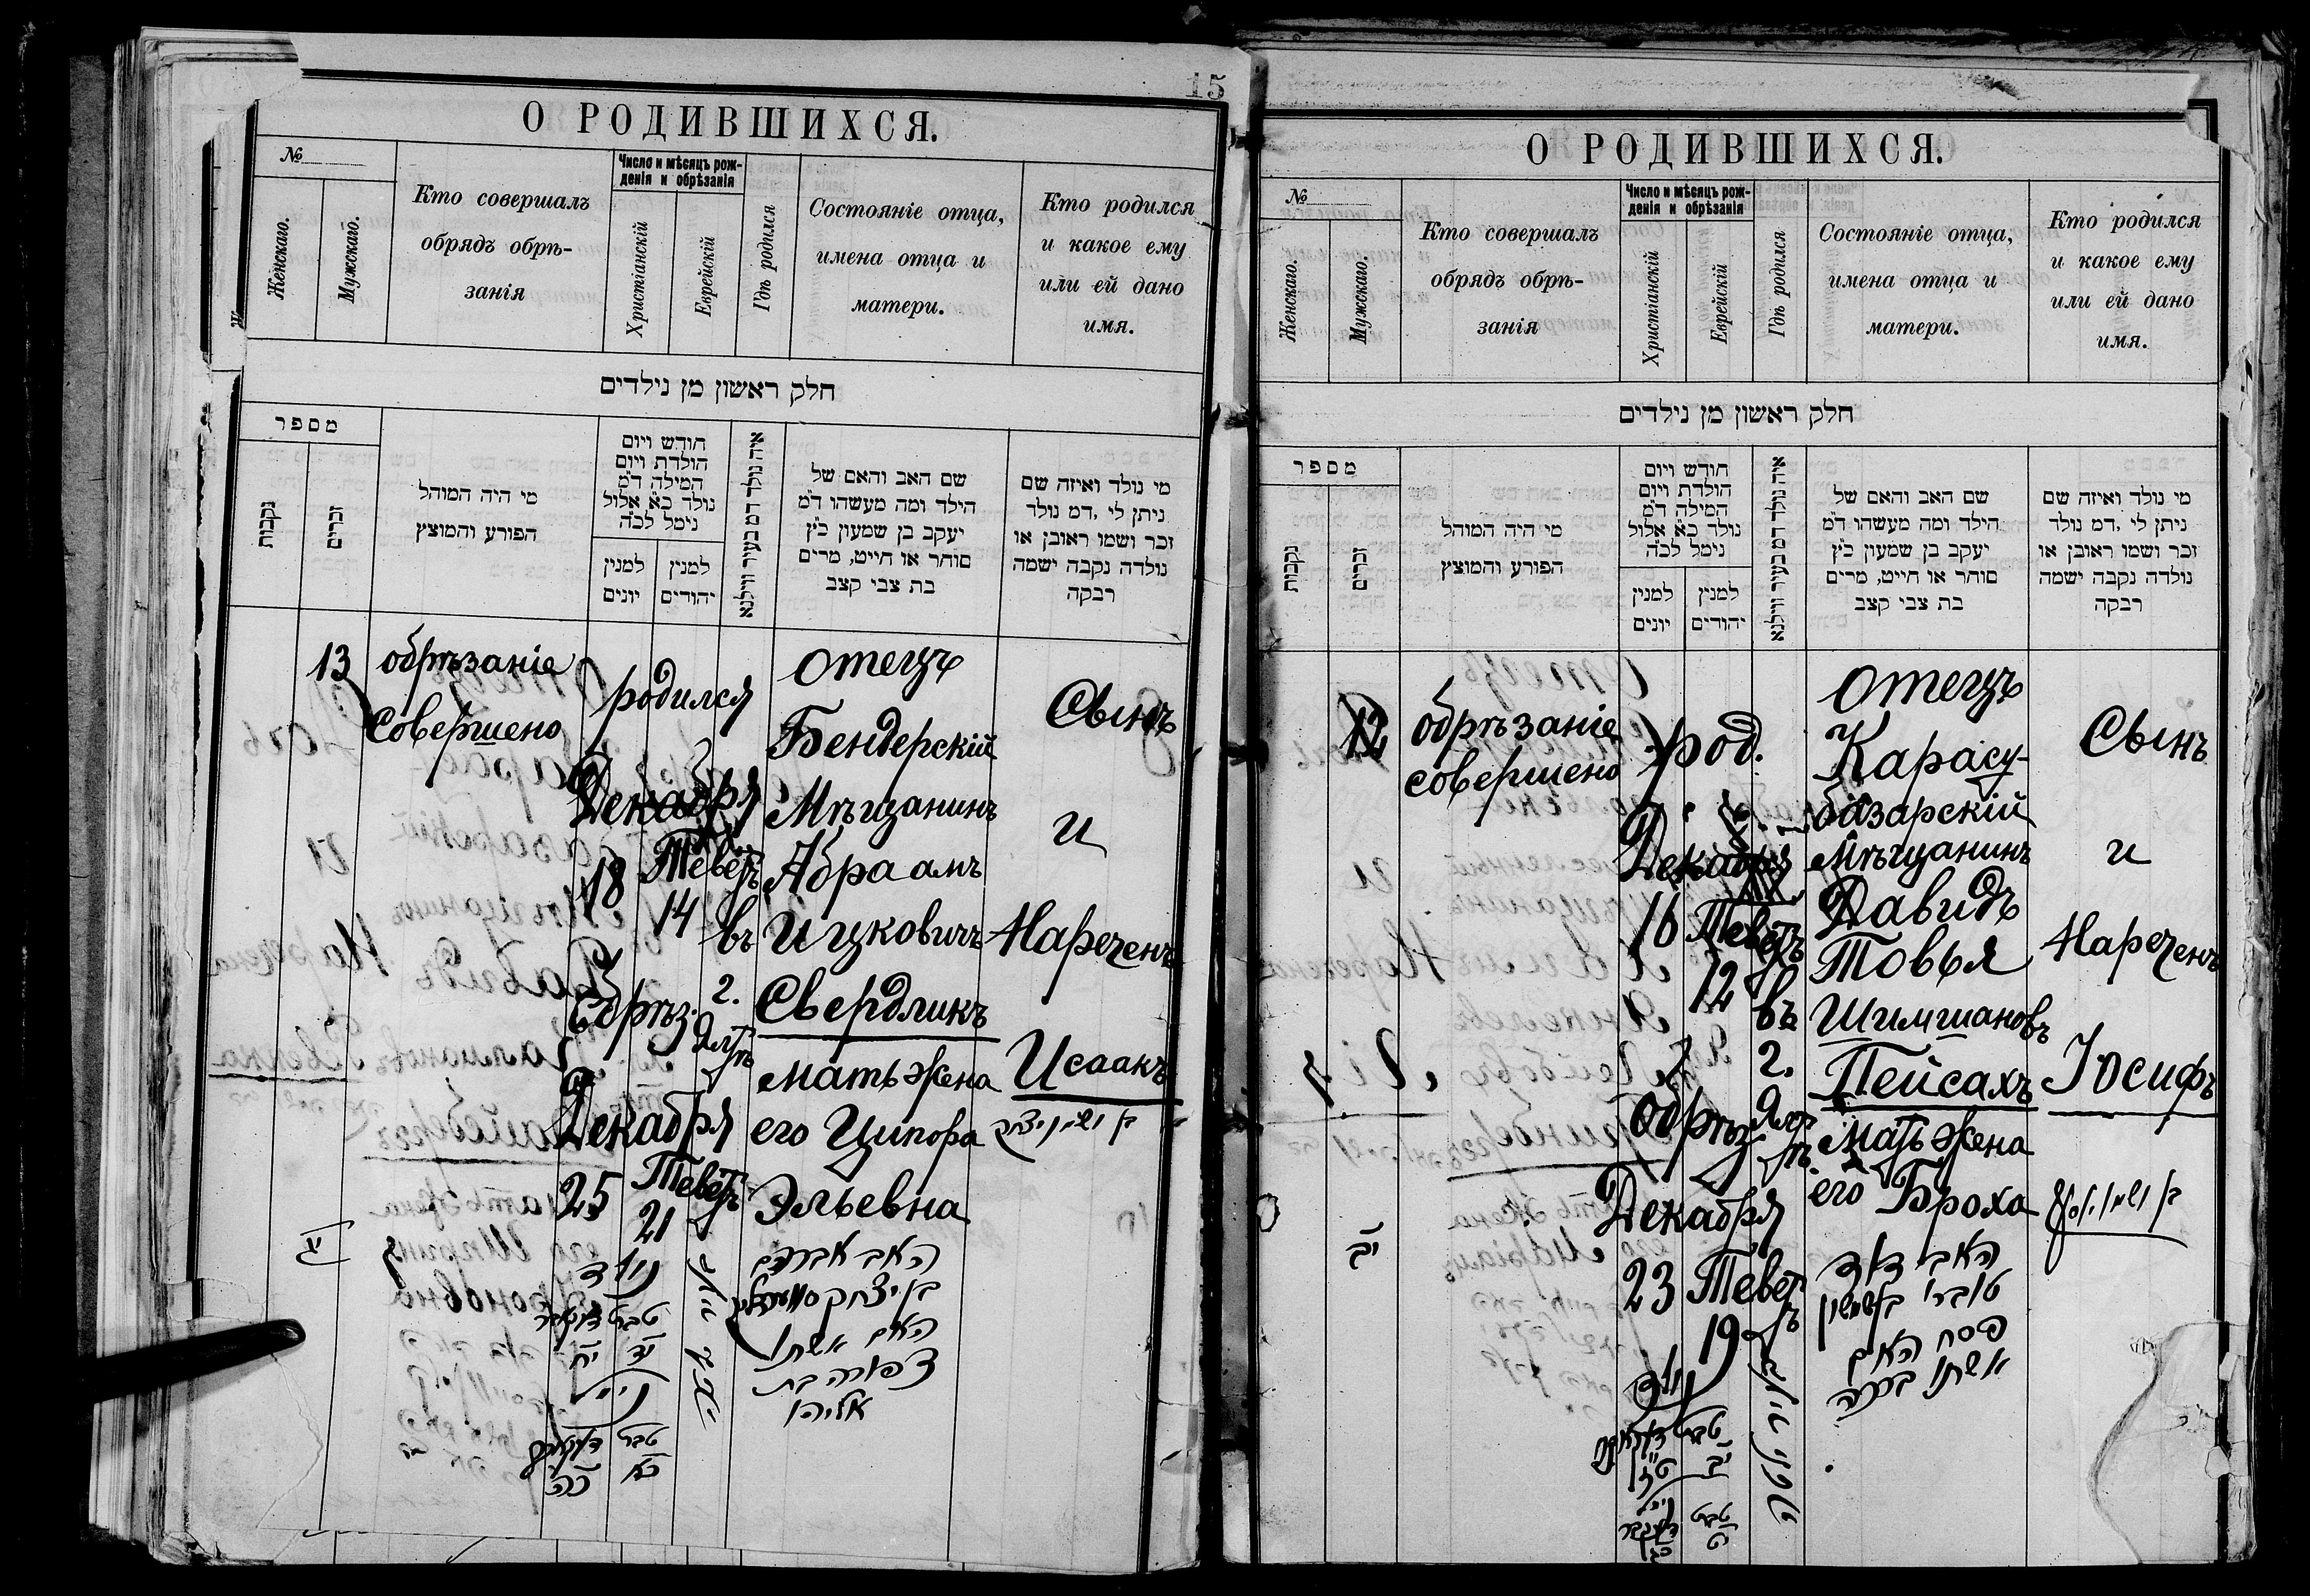 15
О РОДИВШИХСЯ.
№
Женскаго.
Мужскаго.
Кто совершалъ
обрядъ обрѣ-
занія
Число и мѣсяцъ рож-
денія и обрѣзанія
Христіанскій
Еврейскій
Гдѣ родился
Состояніе отца,
имена отца и
матери.
Кто родился
и какое ему
или ей дано
имя.
חלק ראשון מן נילדים
מספר
נקבות
זכרים
מי היה המוהל
הפורע והמוצץ
חודש ויום
הולדת ויום
המילה ד"מ
נולד כ"א אלול
נימל לכ"ה
למנין
יונים
למנין
יהודים
איה נולד דמ בעיר ווילנא
שם האב והאם של
הילד ומה מעשהו ד"מ
יעקב בן שמעון כ"ץ
סוחר או חייט, מרים
בת צבי קצב
מי נולד ואיזה שם
ניתן לי ,דמ נולד
זכר ושמו ראובן או
נולדה נקבה ישמה
רבקה
13
обрѣзаніе
совершено
родился
Декабря
18
Теветъ
14
Обрѣз.
Декабря
25
Теветъ
21
въ
г.
Ялтѣ
отецъ
Бендерскій
Мѣщанинъ
Абраамъ
Ицковичъ
Свердликъ
мать жена
его Ципора
Эльевна
Сынъ
и
Нареченъ
Исаакъ
בן ושמו יצחק
יג
נולד
טבת
יד
יח
טבת
כא
כה
האב אברהם
בן יצחק
האם אשתו
צפורה בת
אליהו
О РОДИВШИХСЯ.
№
Женскаго.
Мужскаго.
Кто совершалъ
обрядъ обрѣ-
занія
Число и мѣсяцъ рож-
денія и обрѣзанія
Христіанскій
Еврейскій
Гдѣ родился
Состояніе отца,
имена отца и
матери.
Кто родился
и какое ему
или ей дано
имя.
חלק ראשון מן נילדים
מספר
נקבות
זכרים
מי היה המוהל
הפורע והמוצץ
חודש ויום
הולדת ויום
המילה ד"מ
נולד כ"א אלול
נימל לכ"ה
למנין
יונים
למנין
יהודים
איה נולד דמ בעיר ווילנא
שם האב והאם של
הילד ומה מעשהו ד"מ
יעקב בן שמעון כ"ץ
סוחר או חייט, מרים
בת צבי קצב
מי נולד ואיזה שם
ניתן לי ,דמ נולד
זכר ושמו ראובן או
נולדה נקבה ישמה
רבקה
12
обрѣзаніе
совершено
род.
Декабря
16
Теветъ
12
обрѣз.
Декабря
23
Теветъ
19
въ
г.
Ялтѣ
отецъ
Карасу-
базарскій
мѣщанинъ
Давидъ
Товья
Шимшановъ
Пейсахъ
Мать жена
его Броха
Сынъ
и
Нареченъ
Іосифъ
בן ושמו יוסף
יב
נולד
טבת
יב
טז
טבת
האב דוד
טובי' בן שמשון
פסח האם
אשתו ברכה